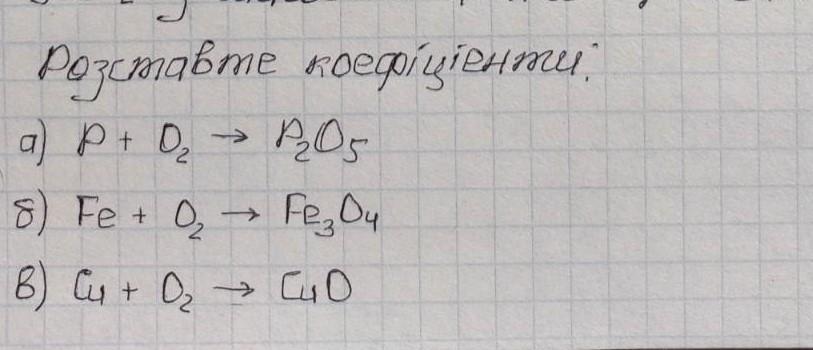 Розставте коефіцієнти:
а) P + O₂ → P₂O₅
б) Fe + O₂ → Fe₃O₄
в) Cu + O₂ → CuO